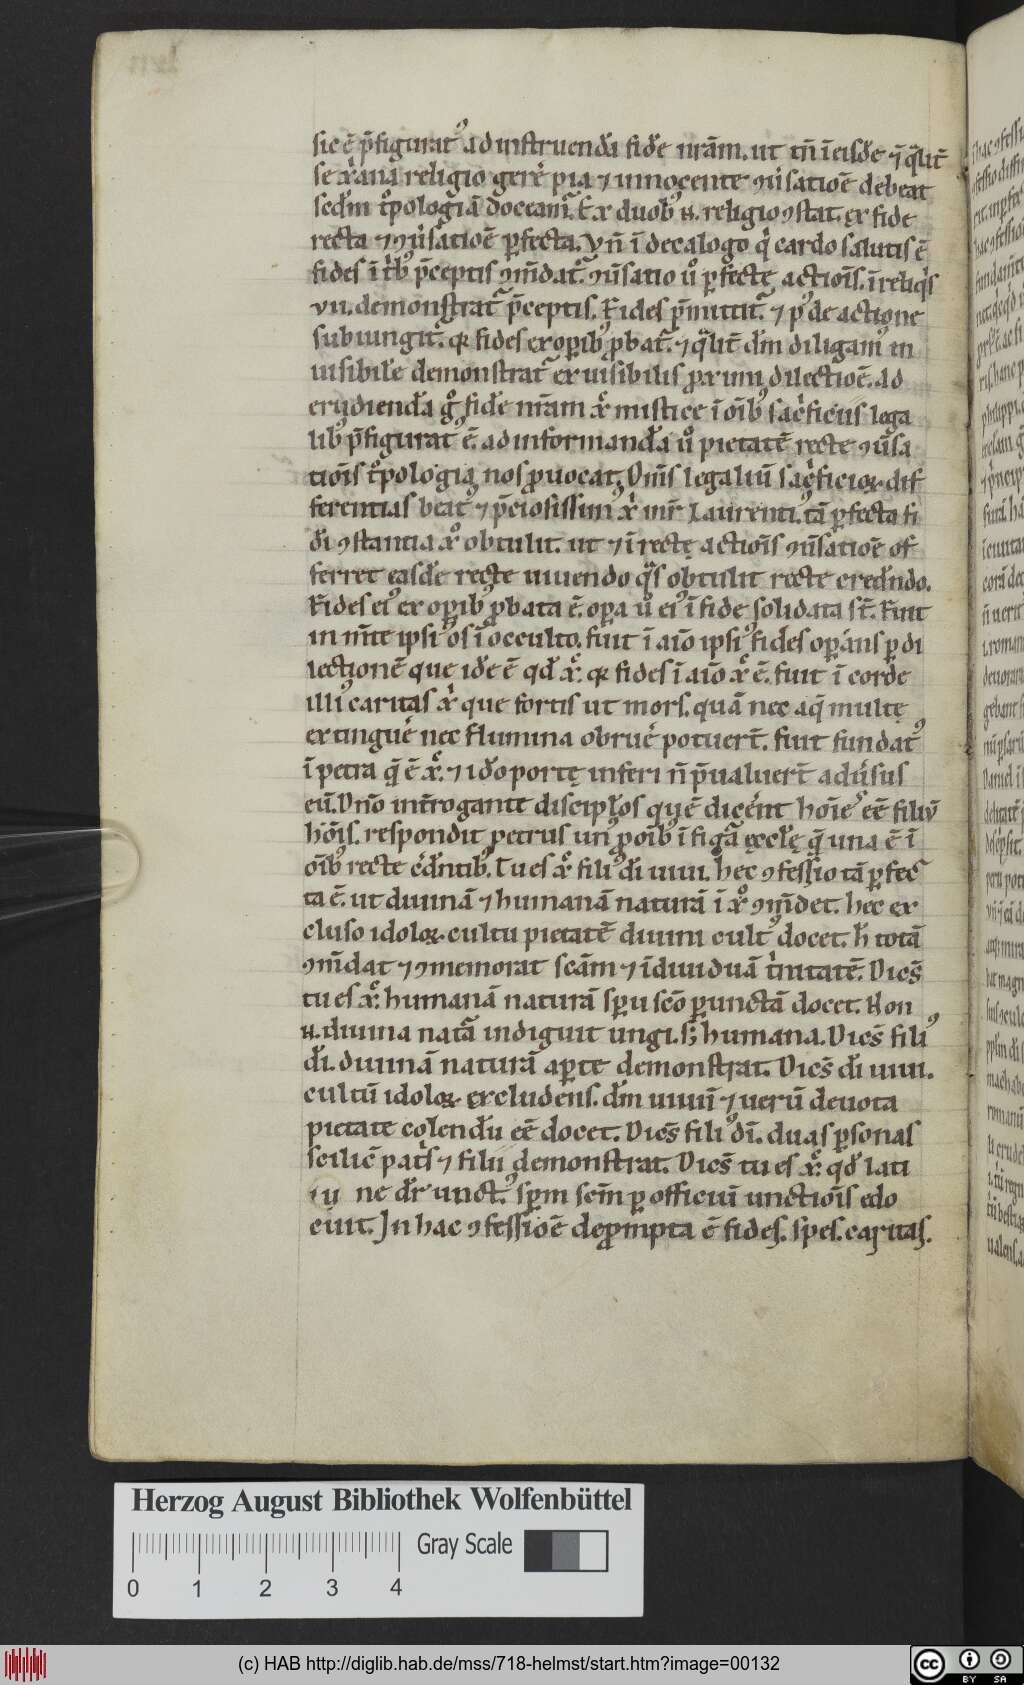 sic ē p̄figurat᷒ ad instruendā fidē nr̄am. ut tn̄ ī eisdē ⁊ q̄lit̄
se xp̄iana religio gerē pia ⁊ innocente ꝯuersatioē debeat
scd̄m tͦpologiā doceam᷒. Ex duob᷒ n. religio ꝯstat. ex fide
recta ⁊ ꝯūsatioē ꝑfecta. Vn̄ ī decalogo q̇ cardo salutis ē
fides ī tͥb᷒ p̄ceptis ꝯm̄dat᷑. ꝯūsatio ūͦ ꝑfectę actiōis. ī reliqͥs
vii. demonstrat᷑ p̄ceptis. Fides p̄mittit᷑. ⁊ p᷒ de actione
subiungit᷑. quia fides ex oꝑib᷒ ꝓbat᷑. ⁊ qͣlit̄ dm̄ diligam᷒ in
uisibilē demonstrat᷑ ex uisibilis ꝓximi dilectioē. ad
erudiendā gͦ fidē nr̄am xp̄c mistice ī oīb᷒ sacͥficiis lega
lib᷒ p̄figurat᷒ ē. ad informandā ūͦ pietatē recte ꝯūsa
tiōis tͦpologia nos ꝓuocat. Om̄s legaliū sacͥficioꝝ dif
ferentias beat᷒ ⁊ p̄ciosissim᷒ xp̄i mr̄ Laurenti᷒. tā ꝑfecta fi
dī ꝯstantia xp̄o obtulit. ut ⁊ ī rectę actiōis ꝯūsatioē of
ferret easdē recte uiuendo qͣs obtulit recte credendo.
Fides ei᷒ ex oꝑib᷒ ꝓbata ē. oꝑa ū ei᷒ ī fide solidata st̄. Fuit
in m̄te ipsi᷒ os ī occulto. fuit ī aīo ipsi᷒ fides oꝑans ꝑ di
lectionē que idē ē qd̄ xp̄c. quia fides ī aīo xp̄c ē. fuit ī corde
illi᷒ caritas xp̄i que fortis ut mors. quā nec aq̄ multę
extinguē nec flumina obruē potuert̄. fuit fundat᷒
ī petra q̄ ē xp̄c. ⁊ idͦo portę inferi n̄ p̄ualuert̄ aduͥsus
eū. Dn̄o int̄rogante discipl̄os quē dicērnt hoīeꝰ eē filiū
hoīs. respondit petrus un᷒ ꝓ oīb᷒ ī figͣ ęcclę q̄ una ē ī
oīb᷒ recte cͥdentib᷒. Tu es xp̄c fili᷒ dī uiui. hec ꝯfessio tā ꝑfec
ta ē. ut diuinā ⁊ humanā naturā ī xp̄o ꝯm̄det. hec ex
cluso idoloꝝ cultu pietatē diuini cult᷒ docet. h̄ totā
ꝯm̄dat ⁊ ꝯmemorat scāam ⁊ īdiuiduā tͥnitatē. Dicēs
tu es xp̄c. humanā naturā spū scō ꝑunctā docet. Non
n. diuina natͣ indiguit ungi. s; humana. Dicēs fili᷒
dī. diuinā naturā aꝑte demonstrat. Dicēs dī uiui.
cultū idoloꝝ excludens. dm̄ uiuū ⁊ uerū deuota
pietate colendū eē docet. Dicēs fili᷒ dī. duas ꝑsonas
scilic̄ patͥs ⁊ filii demonstrat. Dicēs tu es xp̄c. qd̄ lati
ne dr̄ unct᷒. spm̄ scm̄ ꝑ officiū unctiōis edo
cuit. In hac ꝯfessioē deprompta ē fides. spes. caritas.
Herzog August Bibliothek Wolfenbüttel
Gray Scale
0 1 2 3 4
(c) HAB http://diglib.hab.de/mss/718-helmst/start.htm?image=00132
cc BY SA